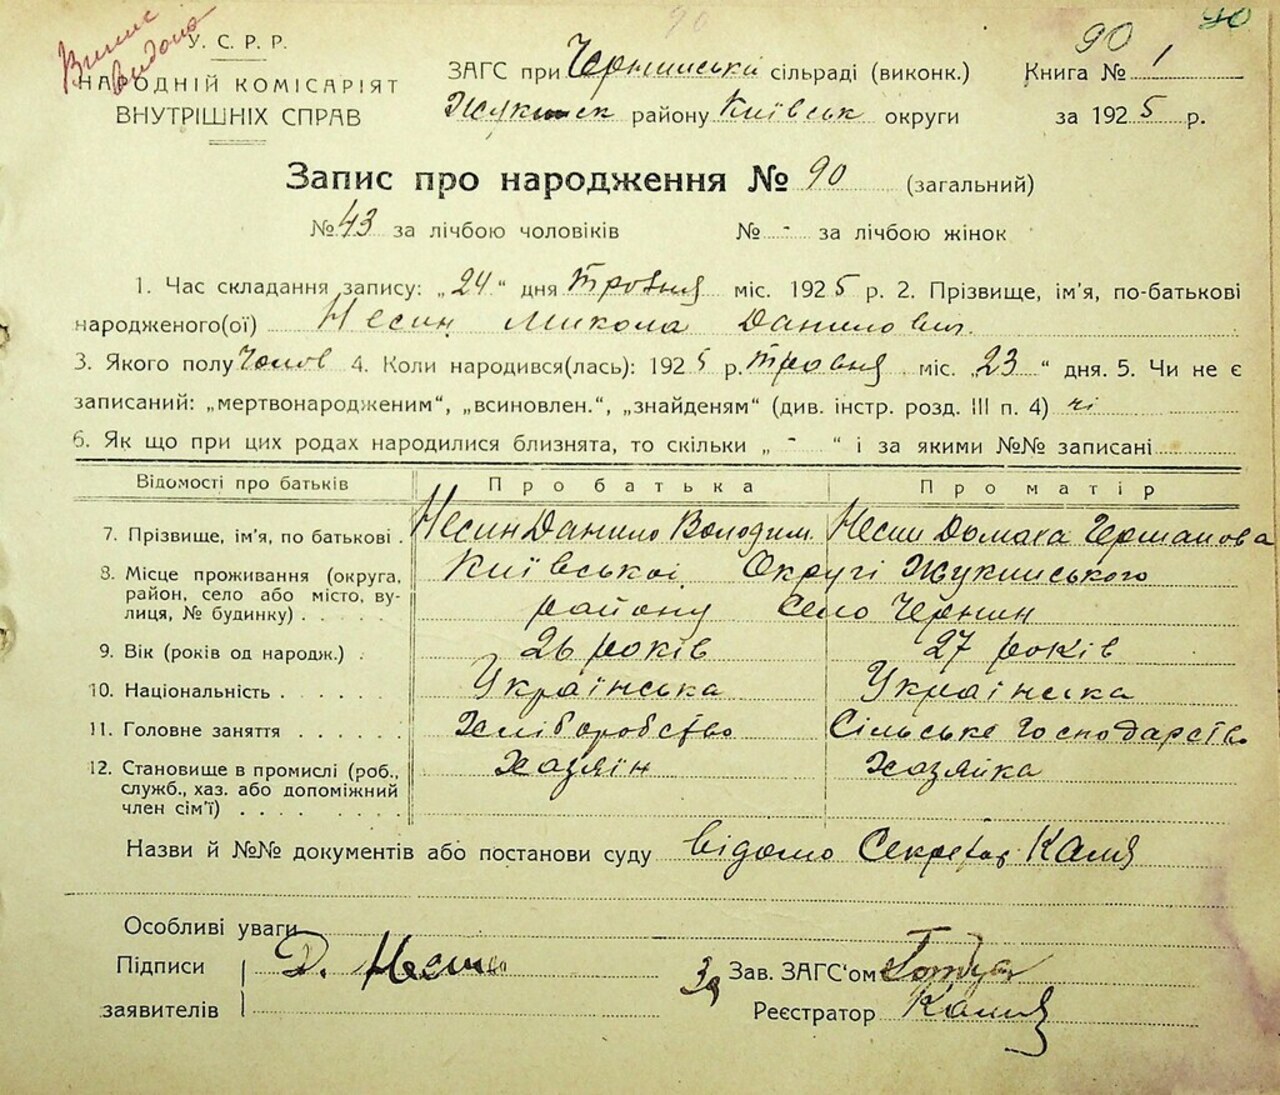 Випис видано
90
90
90
У. С. Р. Р.
НАРОДНІЙ КОМІСАРІЯТ
ВНУТРІШНІХ СПРАВ
ЗАГС при Чернинські сільраді (виконк.)
Жукинск району Київськ округи
Книга № 1
за 1925 р.
Запис про народження № 90 (загальний)
№ 43 за лічбою чоловіків № - за лічбою жінок
1. Час складання запису: „24" дня Травня міс. 1925 р. 2. Прізвище, ім'я, по-батькові
народженого(ої) Несин Микола Данилович.
3. Якого полу Чолов 4. Коли народився(лась): 1925 р. травня міс. „23" дня. 5. Чи не є
записаний: „мертвонародженим", „всиновлен.", „знайденям" (див. інстр. розд. III п. 4) ні
6. Як що при цих родах народилися близнята, то скільки „ - " і за якими №№ записані
Відомості про батьків Про батька Про матір
7. Прізвище, ім'я, по батькові. Несин Данило Володим. Несин Домаха Германова
8. Місце проживання (округа, Київської Округі Жукинського
район, село або місто, ву-
лиця, № будинку) району Село Чернин
9. Вік (років од народж.) 26 років 27 років
10. Національність Українська Українська
11. Головне заняття Хліборобство Сільське Господарство
12. Становище в промислі (роб., Хазяїн Хазяйка
служб., хаз. або допоміжний
член сім'ї)
Назви й №№ документів або постанови суду відомо Секретар
Особливі уваги
Підписи Д. Несин За Зав. ЗАГС'ом
заявителів Реєстратор